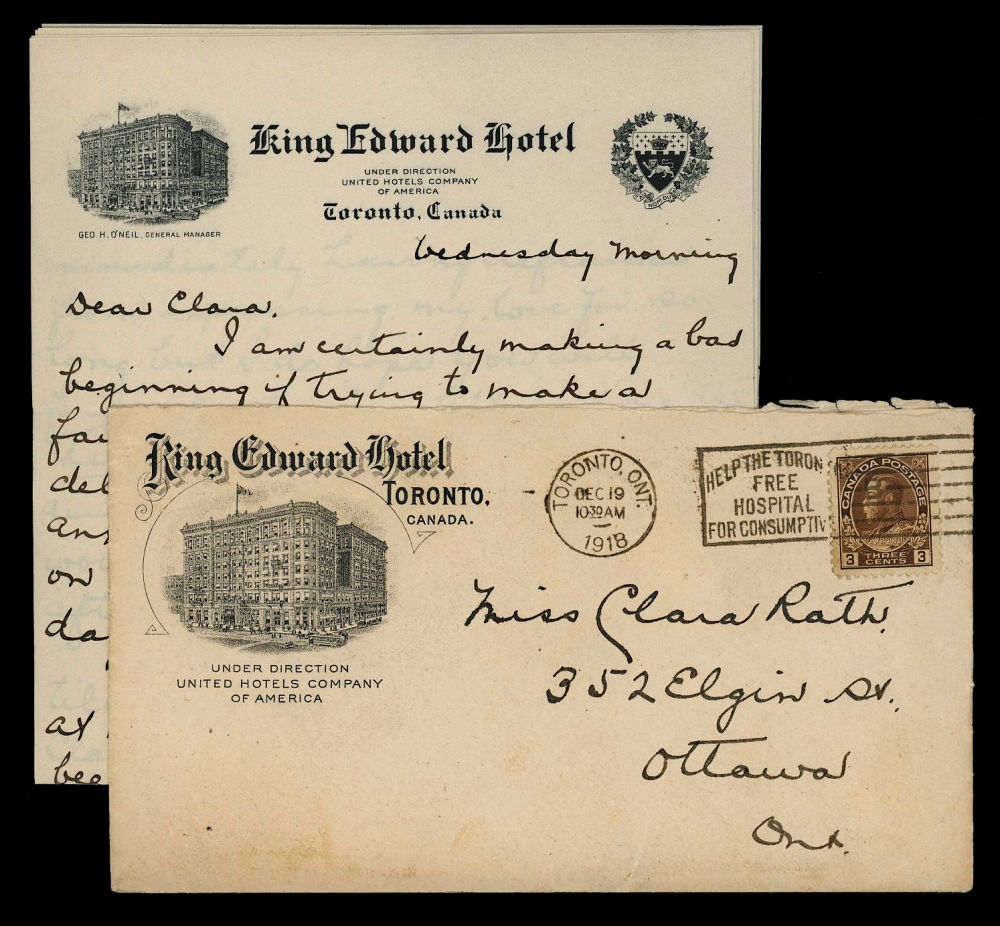 King Edward Hotel
UNDER DIRECTION
UNITED HOTELS COMPANY
OF AMERICA
Toronto, Canada
GEO. H. O'NEIL, GENERAL MANAGER
Wednesday Morning
Dear Clara.
I am certainly making a bad
beginning if trying to make a
fa
del
an
on
da
at
beg
King Edward Hotel
TORONTO,
CANADA.
UNDER DIRECTION
UNITED HOTELS COMPANY
OF AMERICA
TORONTO, ONT.
DEC 19
10 30 AM
1918
HELP THE TORON
FREE
HOSPITAL
FOR CONSUMPTIV
CANADA POSTAGE
3 THREE CENTS 3
Miss Clara Rath.
352 Elgin St.
Ottawa
Ont.